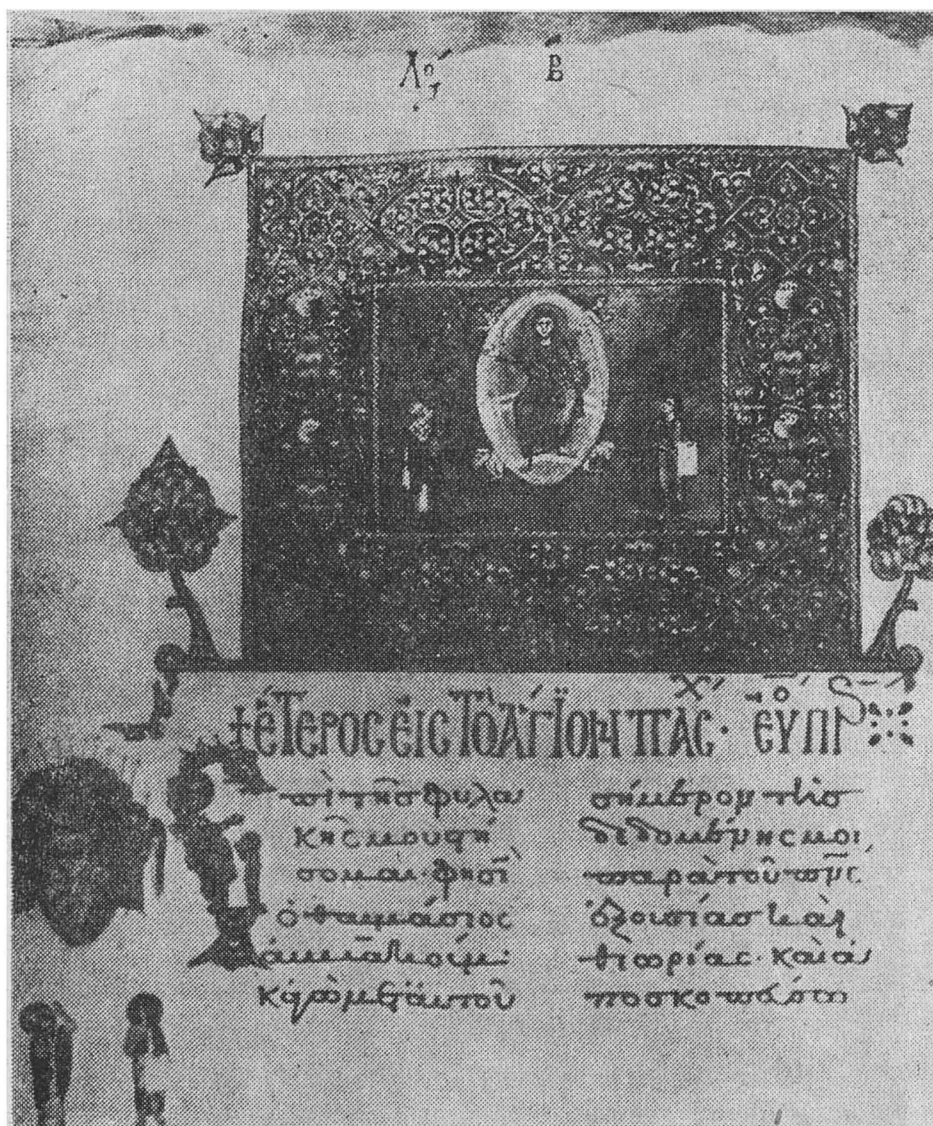 Λό Β
+ ἕτερος εἰς τὸ ἅγιον πάσχ·
Ἐπὶ τῆς φυλα
κῆς μου στή
σομαι· φησὶ
ὁ θαυμάσιος
ἀμβακούμ·
κἀγὼ μετ' αὐτοῦ
σήμερον τῆς
δεδομένης μοι
παρὰ τοῦ πνς
ἐξουσίας καὶ
θεωρίας· καὶ ἀ
ποσκοπεύσω